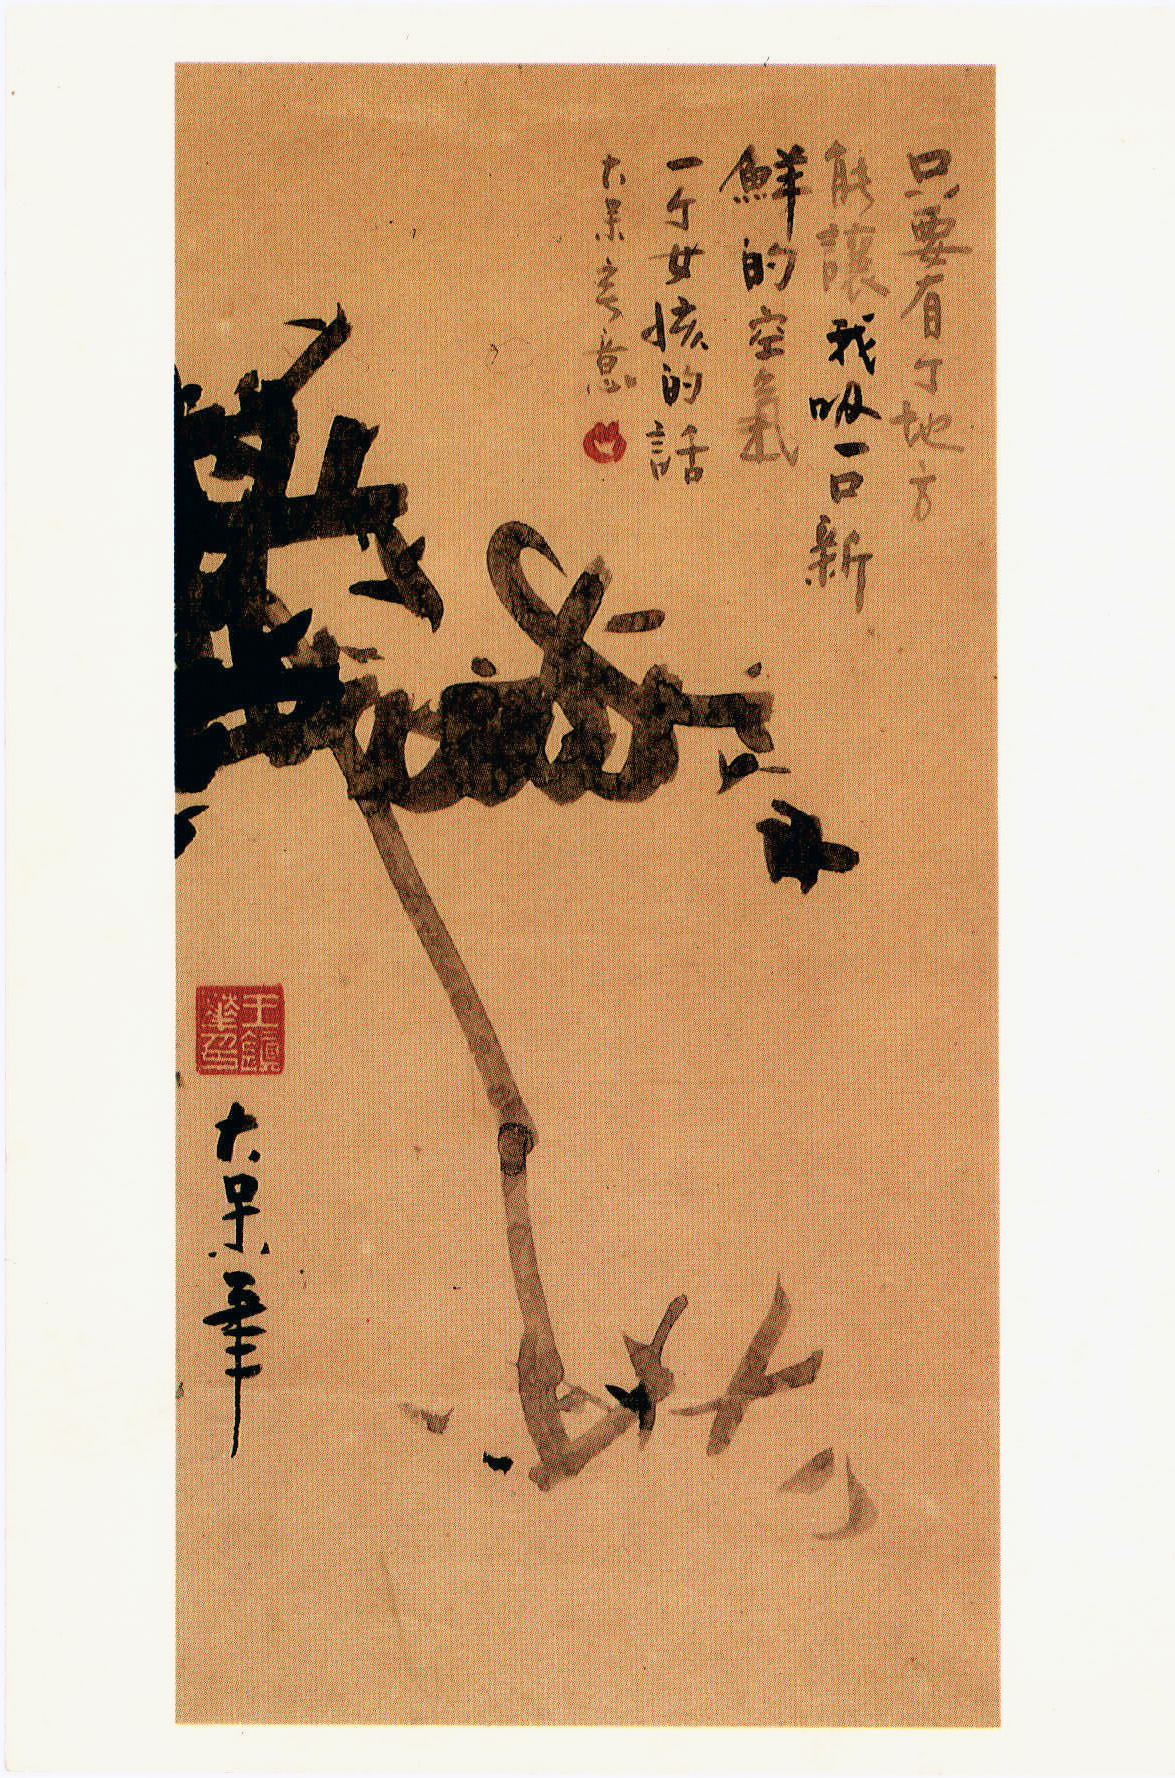 只要有个地方
能讓我吸一口新
鮮的空氣
一个女孩的話
大呆寄意
王鎮華印
大呆華